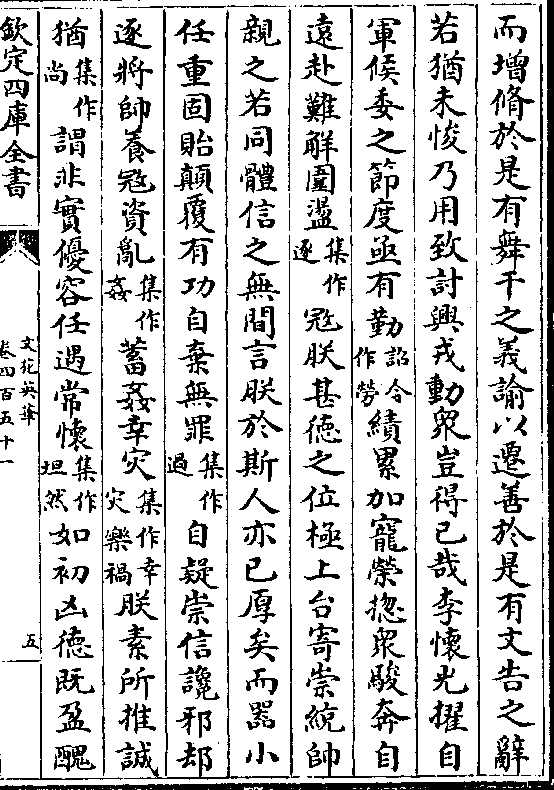 而增脩於是有舞干之義諭以遷善於是有文告之辭
若猶未悛乃用致討興戎動衆豈得已哉李懷光擢自
軍候委之節度亟有勤詔令作勞績累加寵榮揔衆駿奔自
遠赴難解圍盪集作逐冦朕甚德之位極上台寄崇統帥
親之若同體信之無間言朕於斯人亦已厚矣而器小
任重固貽顛覆有功自棄無罪集作過自疑崇信讒邪却
逐將帥養冦資亂集作姦蓄姦幸灾集作幸灾樂禍朕素所推誠
猶集作尚謂非實優容任遇常懷集作坦然如初凶德既盈醜
欽定四庫全書
文苑英華
卷四百五十一
五